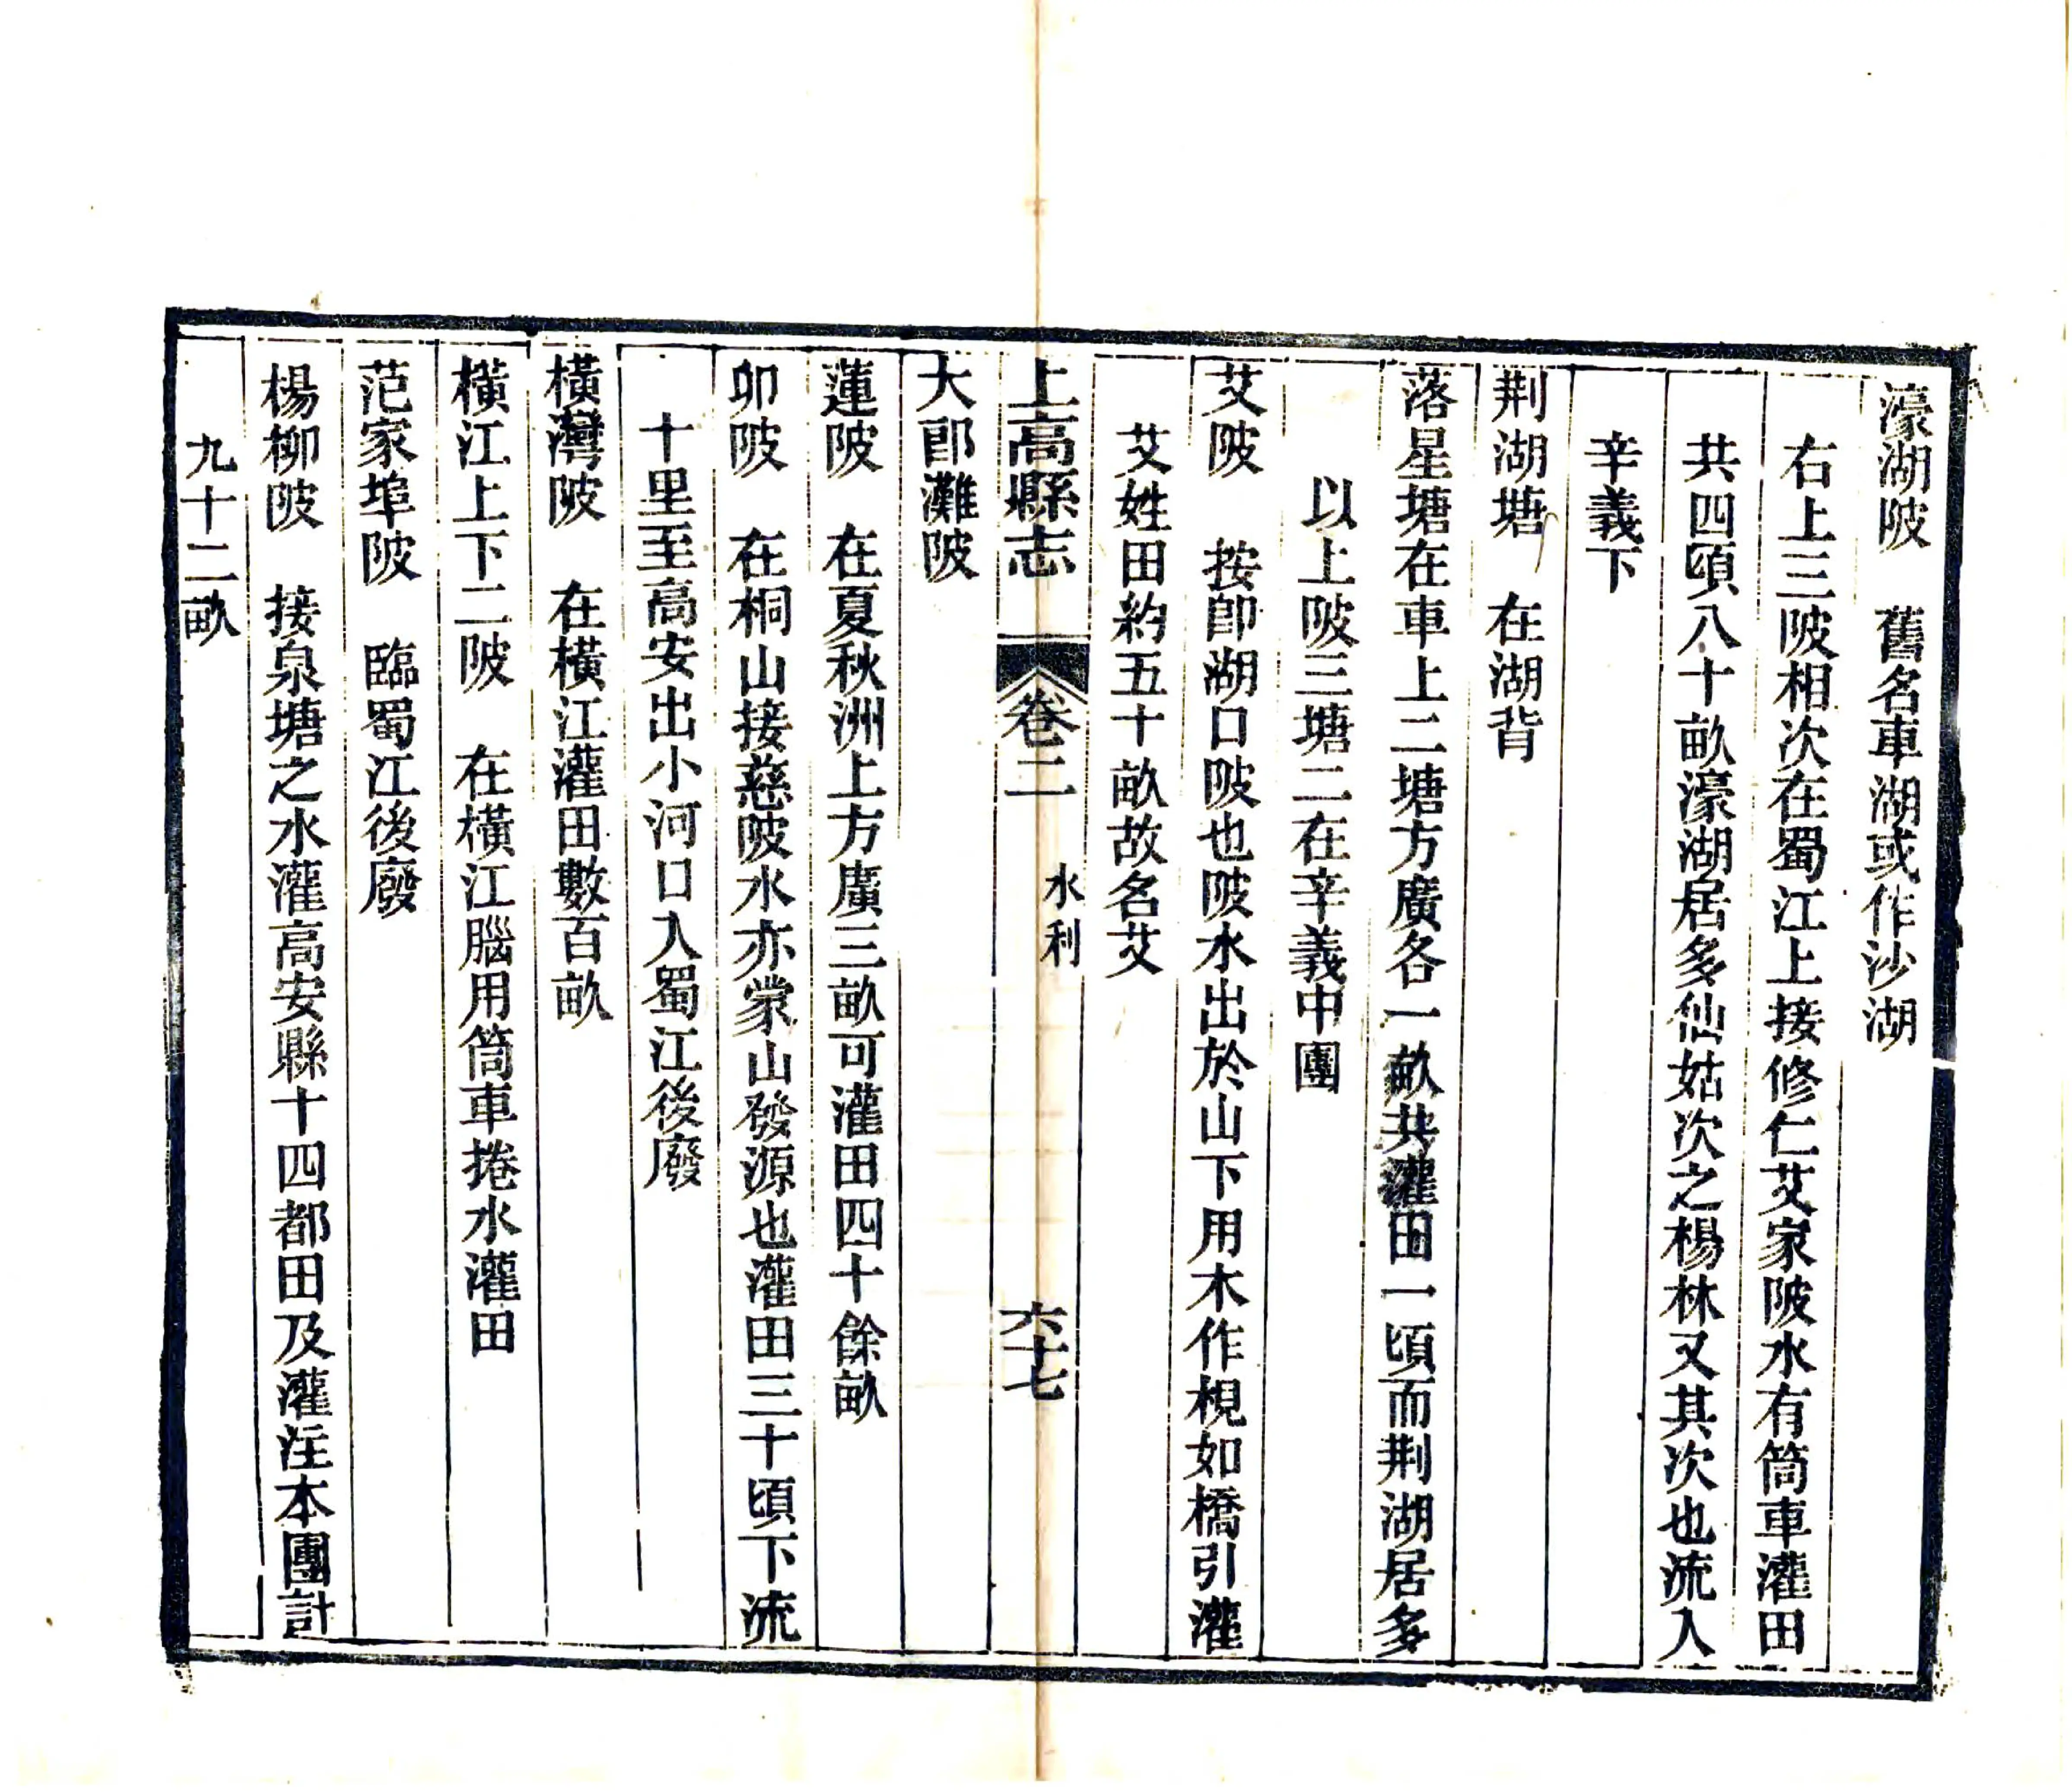 濠湖陂　舊名車湖或作沙湖
右上三陂相次在蜀江上接修仁艾家陂水有筒車灌田
共四頃八十畝濠湖居多仙姑次之楊林又其次也流入
辛義下
荆湖塘　在湖背
落星塘在車上二塘方廣各一畝共灌田一頃而荆湖居多
以上陂三塘二在辛義中團
艾陂　按卽湖口陂也陂水出於山下用木作梘如橋引灌
艾姓田約五十畝故名艾
上高縣志　卷二　水利　六十七
大郎灘陂
蓮陂　在夏秋洲上方廣三畝可灌田四十餘畝
卯陂　在桐山接慈陂水亦蒙山發源也灌田三十頃下流
十里至高安出小河口入蜀江後廢
橫灣陂　在橫江灌田數百畝
橫江上下二陂　在橫江腦用筒車捲水灌田
范家埠陂　臨蜀江後廢
楊柳陂　接泉塘之水灌高安縣十四都田及灌注本團計
九十二畝